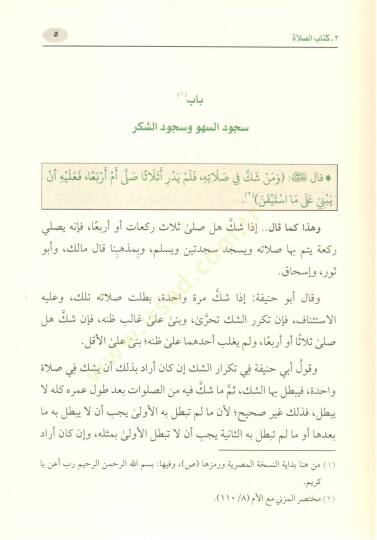 ٢ ـ كتاب الصلاة
٥
باب (١)
سجود السهو وسجود الشكر
♦ قال ﷺ: (وَمَنْ شَكَّ فِي صَلَاتِهِ، فَلَمْ يَدْرِ أَثَلَاثًا صَلَّى أَمْ أَرْبَعًا، فَعَلَيْهِ أَنْ
يَبْنِيَ عَلَى مَا اسْتَيْقَنَ)(٢).
وهذا كما قال.. إذا شكَّ هل صلىٰ ثلاث ركعات أو أربعًا، فإنه يصلي
ركعة يتم بها صلاته ويسجد سجدتين ويسلم، وبمذهبنا قال مالك، وأبو
ثور، وإسحاق.
وقال أبو حنيفة: إذا شكَّ مرة واحدة، بطلت صلاته تلك، وعليه
الاستئناف، فإن تكرر الشك تحرَّىٰ، وبنىٰ علىٰ غالب ظنه، فإن شكَّ هل
صلىٰ ثلاثًا أو أربعًا، ولم يغلب أحدهما علىٰ ظنه؛ بنىٰ علىٰ الأقل.
وقولُ أبي حنيفة في تكرار الشك إن كان أراد بذلك أن يشك في صلاة
واحدة، فيبطل بها الشك، ثمَّ ما شكَّ فيه من الصلوات بعد طول عمره كله لا
يبطل، فذلك غير صحيح؛ لأن ما لم تبطل به الأولىٰ يجب أن لا يبطل به ما
بعدها أو ما لم تبطل به الثانية يجب أن لا تبطل الأولىٰ بمثله، وإن كان أراد
(١) من هنا بداية النسخة المصرية ورمزها (ص)، وفيها: بسم الله الرحمن الرحيم رب أعن يا
كريم.
(٢) مختصر المزني مع الأم (٨/ ١١٠).